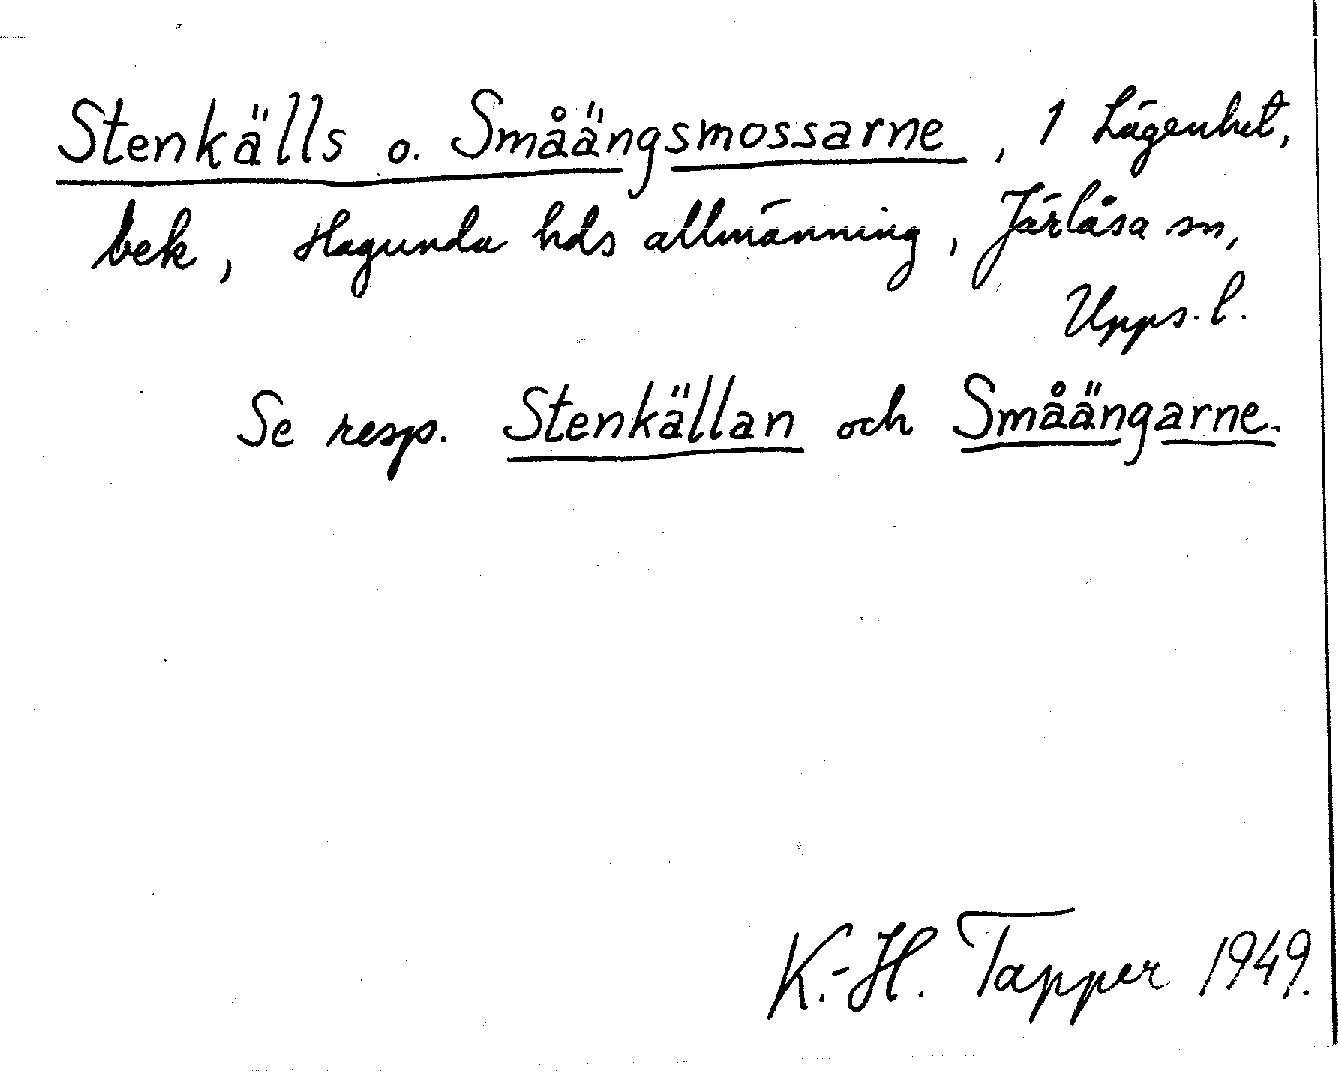 Stenkälls o. Småängsmossarne, 1 Lägenhet,
bek, Hagunda hds allmänning, Järlåsa sn,
Upps. l.
Se resp. Stenkällan och Småängarne.
K.-H. Tapper 1949.